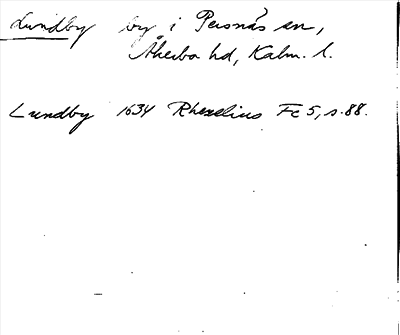 Lundby by i Persnäs sn,
Åkerbo hd, Kalm. l.
Lundby 1634 Rhezelius Fc 5, s. 88.